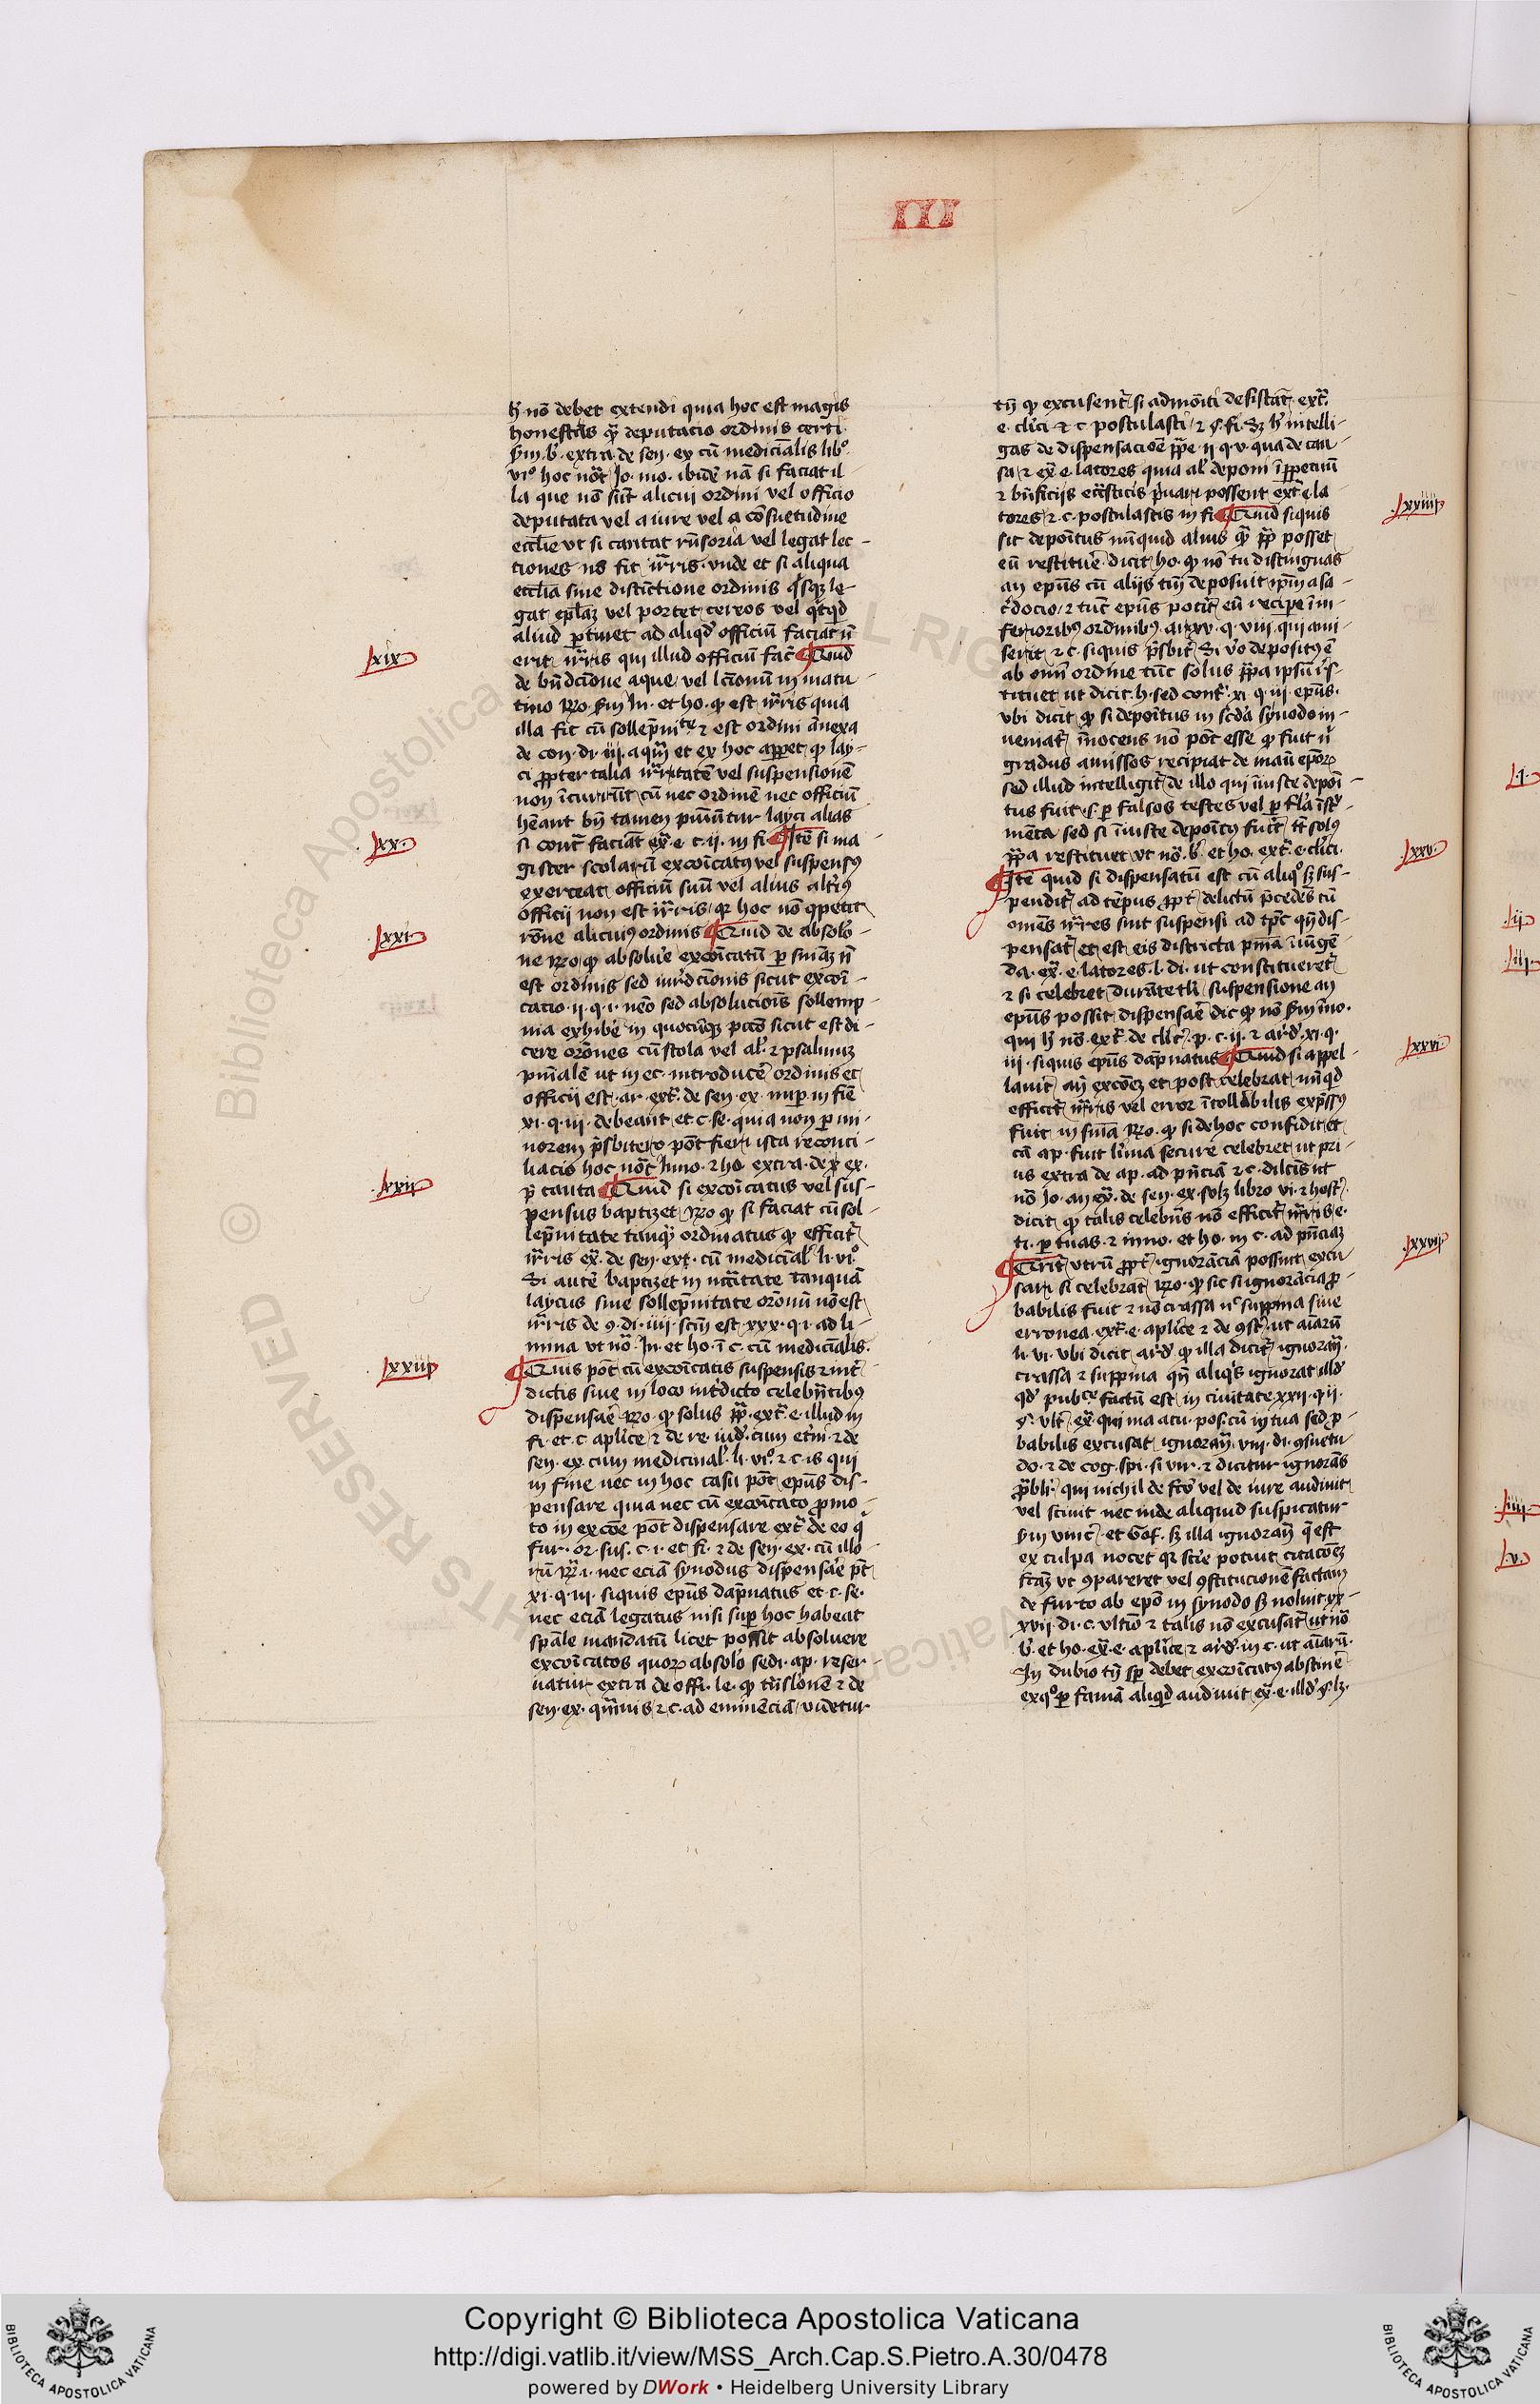 III
h̄ nō debet extendi quia hoc est magis
honestas q̄ deputacio ordinis certi
extra de sen. ex cū medicīalis lib°
vi° hoc nōt Jo. mo. ibidē nā si faciat il
la que nō sūt alicui ordini vel officio
deputata vel a iure vel a cōsuetudine
eccl̄ie ut si cantat rn̄soria vel legat lec-
tiones nō fit irr̄ris. unde et si aliqua
eccl̄ia sine distīctione ordinis
gat ep̄laz vel portet cereos vel
aliud ꝑtinet ad aliqd̄ officiū faciat
erit irr̄ris qui illud officiū fac̄ Quid
lxix
de bn̄dcīone aque vel lc̄ionū in matu
tino Rͦo. In. et ho. ꝙ est irr̄ris quia
illa fit cū sollēpni ⁊ est ordini ānexa
de con. di. iij. aquā et ex hoc apparet ꝙ lay-
ci ꝓpter talia irr̄ritatē vel suspensionē
non īcurrūt cū nec ordinē nec officiū
hēant bn̄ tamen puniūtur layci alias
si cont̄ faciāt ex̄. e. c. ij. in fi Itē si ma
lxx.
gister scolarū excōicatꝰ vel suspensꝰ
exerceat officiū suū vel alius altīꝰ
officij non est irr̄ris qr̄ hoc nō ꝯpetit
rōne alicuiꝰ ordinis Quid de absolō-
lxxi
ne Rͦo. ꝙ absolūe excōicatū ꝑ sn̄iaz
est ordinis sed iurīdcīonis sicut excōi
catio. ij. q. i. nēo sed absolucīois sollemp-
nia exhibē in quocūqꝫ sicut est di-
cere orōnes cū stola vel al̄. ⁊ psalmuz
pn̄ialē ut in ec. introducē ordinis et
officij est. ar. ext̄. de sen. ex. nup̄ in fiē
xi. q. iij. debeant et c. se. quia non ꝑ mi-
norem pr̄sbitero pōt fieri ista reconci-
liacio hoc nōt Inno. ⁊ ho. extra. de
cauta Quid si excōicatus vel sus-
lxxii
pensus baptizet Rͦo ꝙ si faciat cū sol-
lēpnitate tanq̄ ordinatus ꝙ efficit̄
irr̄ris ex̄. de sen. ext̄. cū medicīal̄ li. vi°
Si autē baptizet in nēcitate tanquā
laycus sine sollēpnitate orōnū nō est
irr̄ris de ꝯ. di. iiij. est xxx. q. i. ad li-
mina ut nō. In. et ho. ī c. cū medicīalis.
Quis pōt cū excōicatis suspensis ⁊ int̄
lxxiij
dictis sine in loco int̄dicto celebrn̄tibꝰ
dispensāe Rͦo. ꝙ solus pp̄. ext̄. e. illud in
fi. et. c aplīce ⁊ de re. iud̄. cum et̄ni. ⁊ de
sen. ex. cum medicinal̄. li. vi°. ⁊ c. is qui
in fine nec in hoc casu pōt ep̄us dis-
pensare quia nec cū excōicato ꝓmo-
to in excōe pōt dispensare ext̄. de eo q̄
fur. or. sus. c. i. et fi. ⁊ de sen. ex. cū illo-
rū nec eciā synodus dispensāe
xi. q. iij. siquis ep̄us dāpnatus et c. se.
nec eciā legatus nisi suꝑ hoc habeat
spāle mandatū licet possit absoluere
excōicatos quoꝝ absolō sedi. ap. reser-
uatur extra de offi. le. ꝙ trāslōnē ⁊ de
sen. ex. ⁊ c. ad eminēciā vidētur
tn̄ ꝙ excusent̄ si admōiti desistāt ext̄.
e. clīci ⁊ c postulasti ⁊ §. fi. Sꝫ h̄ intelli-
gas de dispensacōe pp̄e. ij q. v. qua de cau-
sa ⁊ ex̄. e. latores quia al̄ deponi ī ꝑpetuū
⁊ bn̄ficijs eccl̄sticis p̄uari possent ext̄ e. la
tores ⁊. c. postulastis in fi Quid siquis
lxxiiij
sit depoitus nūquid alius q̄ pp̄ posset
eū restituē. dicit ho. ꝙ nō tu distinguas
an ep̄us cū alijs tm̄ deposuit ip̄m a sa-
c̄docio ⁊ tūc ep̄us potīt eū recipe ī in-
ferioribꝰ ordinibꝰ. ar. xv. q. viij. qui ami-
serit ⁊ c. siquis pr̄sbit̄. Si vo depositꝰ ē
ab omī ordine tūc solus pp̄a ipsū res-
tituet ut dicit. h. sed cont̄. xi q. iij. ep̄us.
ubi dicit ꝙ si depoitus in scd̄a synodo in-
ueniat̄ īnocens nō pōt esse ꝙ fuit
gradus amissos recipiat de manū ep̄oꝝ
sed illud intelligit̄ de illo qui iniuste depoi-
tus fuit. s. ꝑ falsos testes vel ꝑ
mēta sed si iniuste depoitꝰ fuīt solꝰ
pp̄a restituet ut nō. et ho. ext̄. e. clīci.
lxxv.
Itē quid si dispensatū est cū aliq° sus-
pendit̄ ad tēpus ꝓpt̄ delictū p̄cedēs cū
omēs irr̄res sint suspensi ad tp̄c qn̄ dis-
pensat̄ et est eis districta pn̄ia iniungē-
da. ex̄. e. latores. l. di. ut constitueret̄
⁊ si celebret durāte tl̄i suspensione an
ep̄us possit dispensāe dic ꝙ nō īno.
qui h̄ nō. ext̄. de clīc. p. c. ij. ⁊ ard̄. xi. q.
iij. siquis ep̄us dāpnatus Quid si appel-
lxxvi
lauīt an̄ excōez et post celebrat nūqd
efficit̄ irr̄ris vel error ītollabilis exp̄ssꝰ
fuit in sn̄ia Rͦo. ꝙ si de hoc confidit et
cā ap. fuit līma secure celebret ut pri-
us extra de ap. ad pn̄ciā ⁊ c. dilcīs ut
nō Jo. an̄ ex̄. de sen. ex. solꝫ libro vi. ⁊ host̄.
dicit ꝙ talis celebrn̄s nō efficit̄ irr̄ris e.
ti. ꝑ tuas. ⁊ inno. et ho. in c. ad pn̄ciaz
lxxvij
Querit̄ utrū ꝓpt̄ ignorāciā possint excu
sari si celebrāt Rͦo. ꝙ sic si ignorācia ꝓ-
babilis fuit ⁊ nō crassa nc̄ supīna siue
erronea. ext̄. e. aplīce ⁊ de ꝯst̄. ut aīarū
li. vi. ubi dicit ard̄ ꝙ illa dicit̄ ignorāa.
crassa ⁊ supīna qn̄ aliqs ignorat illd̄
qd̄ pubce factū est in ciuitate xxij. q. ij.
§. ult̄ ex̄. qui ma acu. pos. cū in tua sed ꝓ-
babilis excusat ignorāa viij. di. ꝯsuetu-
do. ⁊ de cog. spi. si vir. ⁊ dicitur ignorās
ꝓblr̄. qui nichil de fc̄o vel de iure audiuit
vel sciuit nec inde aliquid suspicatur
vinc̄. et Gof. sꝫ illa ignorāa q̄ est
ex culpa nocet qr̄ scīe potuit citacōez
fcāz ut ꝯpareret vel ꝯstitucionē factam
de furto ab ep̄o in synodo sꝫ noluit xx-
xvij. di. c. ultīo ⁊ talis nō excusat̄ ut nō
et ho. ex̄. e. aplīce ⁊ ard̄. in c. ut aīarū.
In dubio tn̄ sp̄ debet excōicatꝰ abstinē
ex q° ꝑ famā aliqd audiuit ex̄. e. illd̄
l.i.
lij.
liij.
liiij
l.v.
Copyright © Biblioteca Apostolica Vaticana
http://digi.vatlib.it/view/MSS_Arch.Cap.S.Pietro.A.30/0478
powered by DWork • Heidelberg University Library